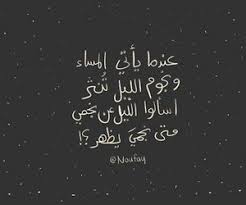 عندما يأتي المساء
ونجوم الليل تُنثر
اسألوا الليل عن نجمي
متى نجميَ يظهر ؟!
@Noufay